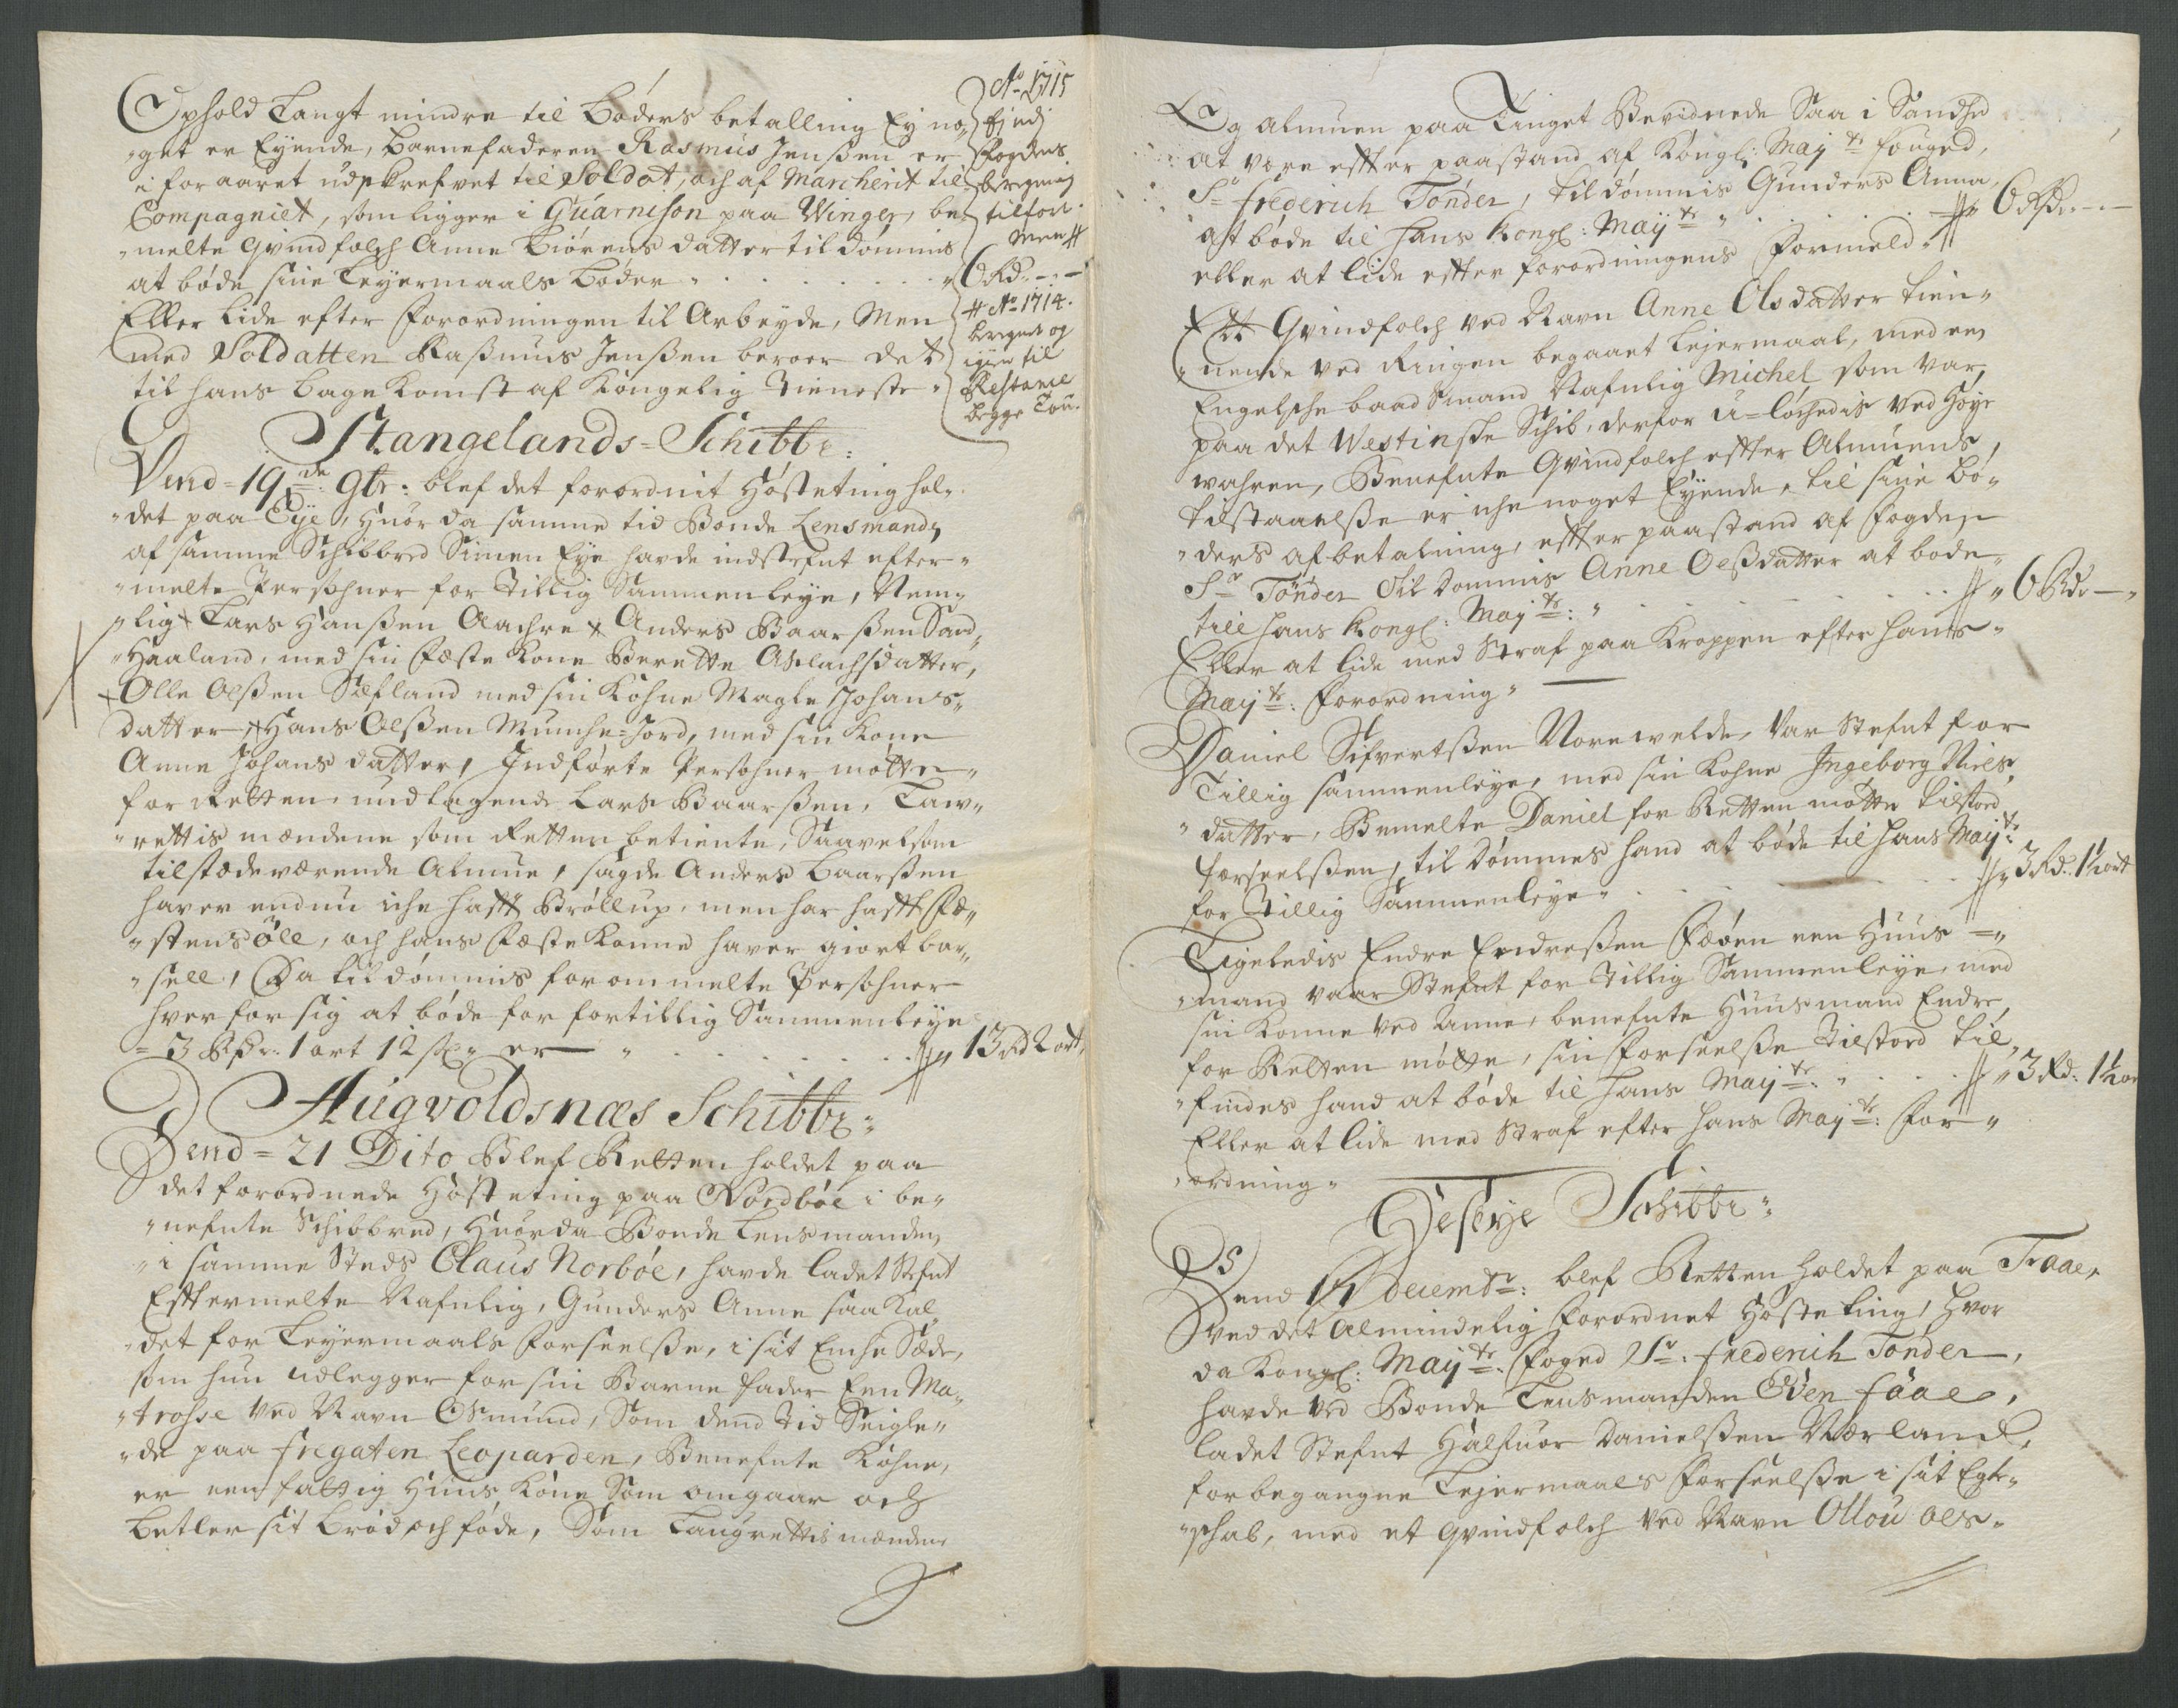 Ophold langt mindre til Bøders betalling Ey no„
„get er Eyende, barnefaderen Rasmus Jenssen er
i foraaret udskrefvet til Soldat, och af Marcherit til
Compagniet, som ligger i Guarnison paa Winger, be„
„melte qvindfolch Anne Biørens datter til dømmis
at bøde sine Leyermaals bøder „ . . . . . . „ 6 Rd. –. –
Eller lide efter forordningen til Arbeyde, Men
med Soldatten Rassmus Jenssen beroer det
til hans bage komst af kongelig Tieneste„
Ao 1715
fogdens
beregning
tilført.
Men #
# Ao 1714.
beregnet og
igien til
Restance
begge Tou.
Stangelands-Schibbr:
Dend = 19de 9br: blef det forordnit Høsteting hol„
„det paa Eye, huor da samme tid Bonde Lensmand
af samme Schibbred Simen Eye hafde indstefnt efter„
„melte Persohner for Tillig Sammenleye, Nem„
„lig + Lars Hanssen Aachre + Anders Baarssen Sand„
„Haaland, med sin fæste kone Berette Aslachsdatter,
+ Olle Olssen Sæfland med sin kohne Magle Johans„
datter + Hans Olssen Munche-Jord, med sin kone
Anne Johans datter, Indførte Persohner møtte„
for Retten undtagende Lars Baarssen, Law„
„rettis mændene som Retten betiente, Saavelsom
tilstædeværende Almue, sagde Anders Baarssen
hafver endnu iche hafft Brøllup, men har hafft Fæ„
„stensøll, och hans fæste konne hafver giort bar„
„sell, Da til dømmis forommelte Persohner
hver for sig at bøde for fortillig Sammenleye
= 3 Rdr: 1 ort 12 s. er – „ . . . . . . „ 13 Rd 2 ort,
Augvoldsnæs Schibbr:
Dend = 21 Dito Blef Retten holdet paa
det forordnede Høsteting paa Nordbøe i be„
„nefnte Schibbred, Huorda Bonde Lensmanden
„i samme Steds Claus Norbøe, hafde ladet Stefnt
Efftermelte Nafnlig, Gunders Anne saa kal„
„det for Leyermaals forseelsse, i sit Enche Sæde,
som hun udlegger for sin Barne fader Een Ma„
„trosse ved Nafn Osmund, Som dend tid Seigle„
„de paa fregaten Leoparden, Benefnte Kohne,
er een fattig Huus kone Som omgaar och
betler sit brød och føde, Som Laugrettis mændene
Og almuen paa Tinget Bevidnede Saa i Sandhed
at være effter paastand af Kongl: Maytz fouged,
Sr frederich Tønder, tildømmis Gunders Anna
at bøde til hans Kongl: Maytz „ . . . . . „ 6 Rdr. –. –
eller at lide effter forordningens formeld„
Ett Qvindfolch ved Nafn Anne Olsdatter tien„
„nende ved Ringen begaaet Lejermaal, med en
Engelsche baadsmand Nafnlig Michel som var
paa det Westinsche Schib, derfor u-løchedis ved Høye
wahren, Benefnte Qvindfolch effter Almuens
tilstaaelsse er iche noget Eyende, til sine bø„
„ders afbetalning, effter paastand af fogden
Sr Tønder Til Dømmis Anne Olssdatter at bøde„
till hans Kongl: Maytz: „ . . . . . . „ 6 Rdr –„
Eller at lide med Straf paa Kroppen efter hans„
Maytz: forordning„
Daniel Sifvertssen Norewelde, Var Stefnt for
Tillig sammenleye, med sin kohne Ingeborg Niels„
„datter, Bemelte Daniel for Retten møtte tilstod
forseelssen, til dømmes hand at bøde til hans Maytz:
for Tillig Sammenleye„ . . . . . „ 3 Rd. 1½ ort
Ligeledis Endre Endressen Fæøen een Huus –„
„mand vaar Stefnt for Tillig Sammenleye, med
sin konne ved Anne, benefnte Huusmand Endre,
for Retten møtte, sin forseelsse tilstod til„
„findes hand at bøde til hans Maytz: „ . . . . „ 3 Rd: 1½ or
Eller at lide med Straf efter hans Maytz: for„
„ordning„
Schibbr:
Dend 17 Decembr: blef Retten holdet paa Traae,
ved det Almindelig forordnet Høsteting, hvor
da Kongl: Maytz: foged Sr: frederich Tønder,
hafde ved Bonde Lensmanden Oden faae,
ladet Stefnt Halfuor Danielssen Nærland,
for begangne Lejermaals forseelsse i sit Egte„
„schab, med et qvindfolch ved Nafn Ollou Ols„